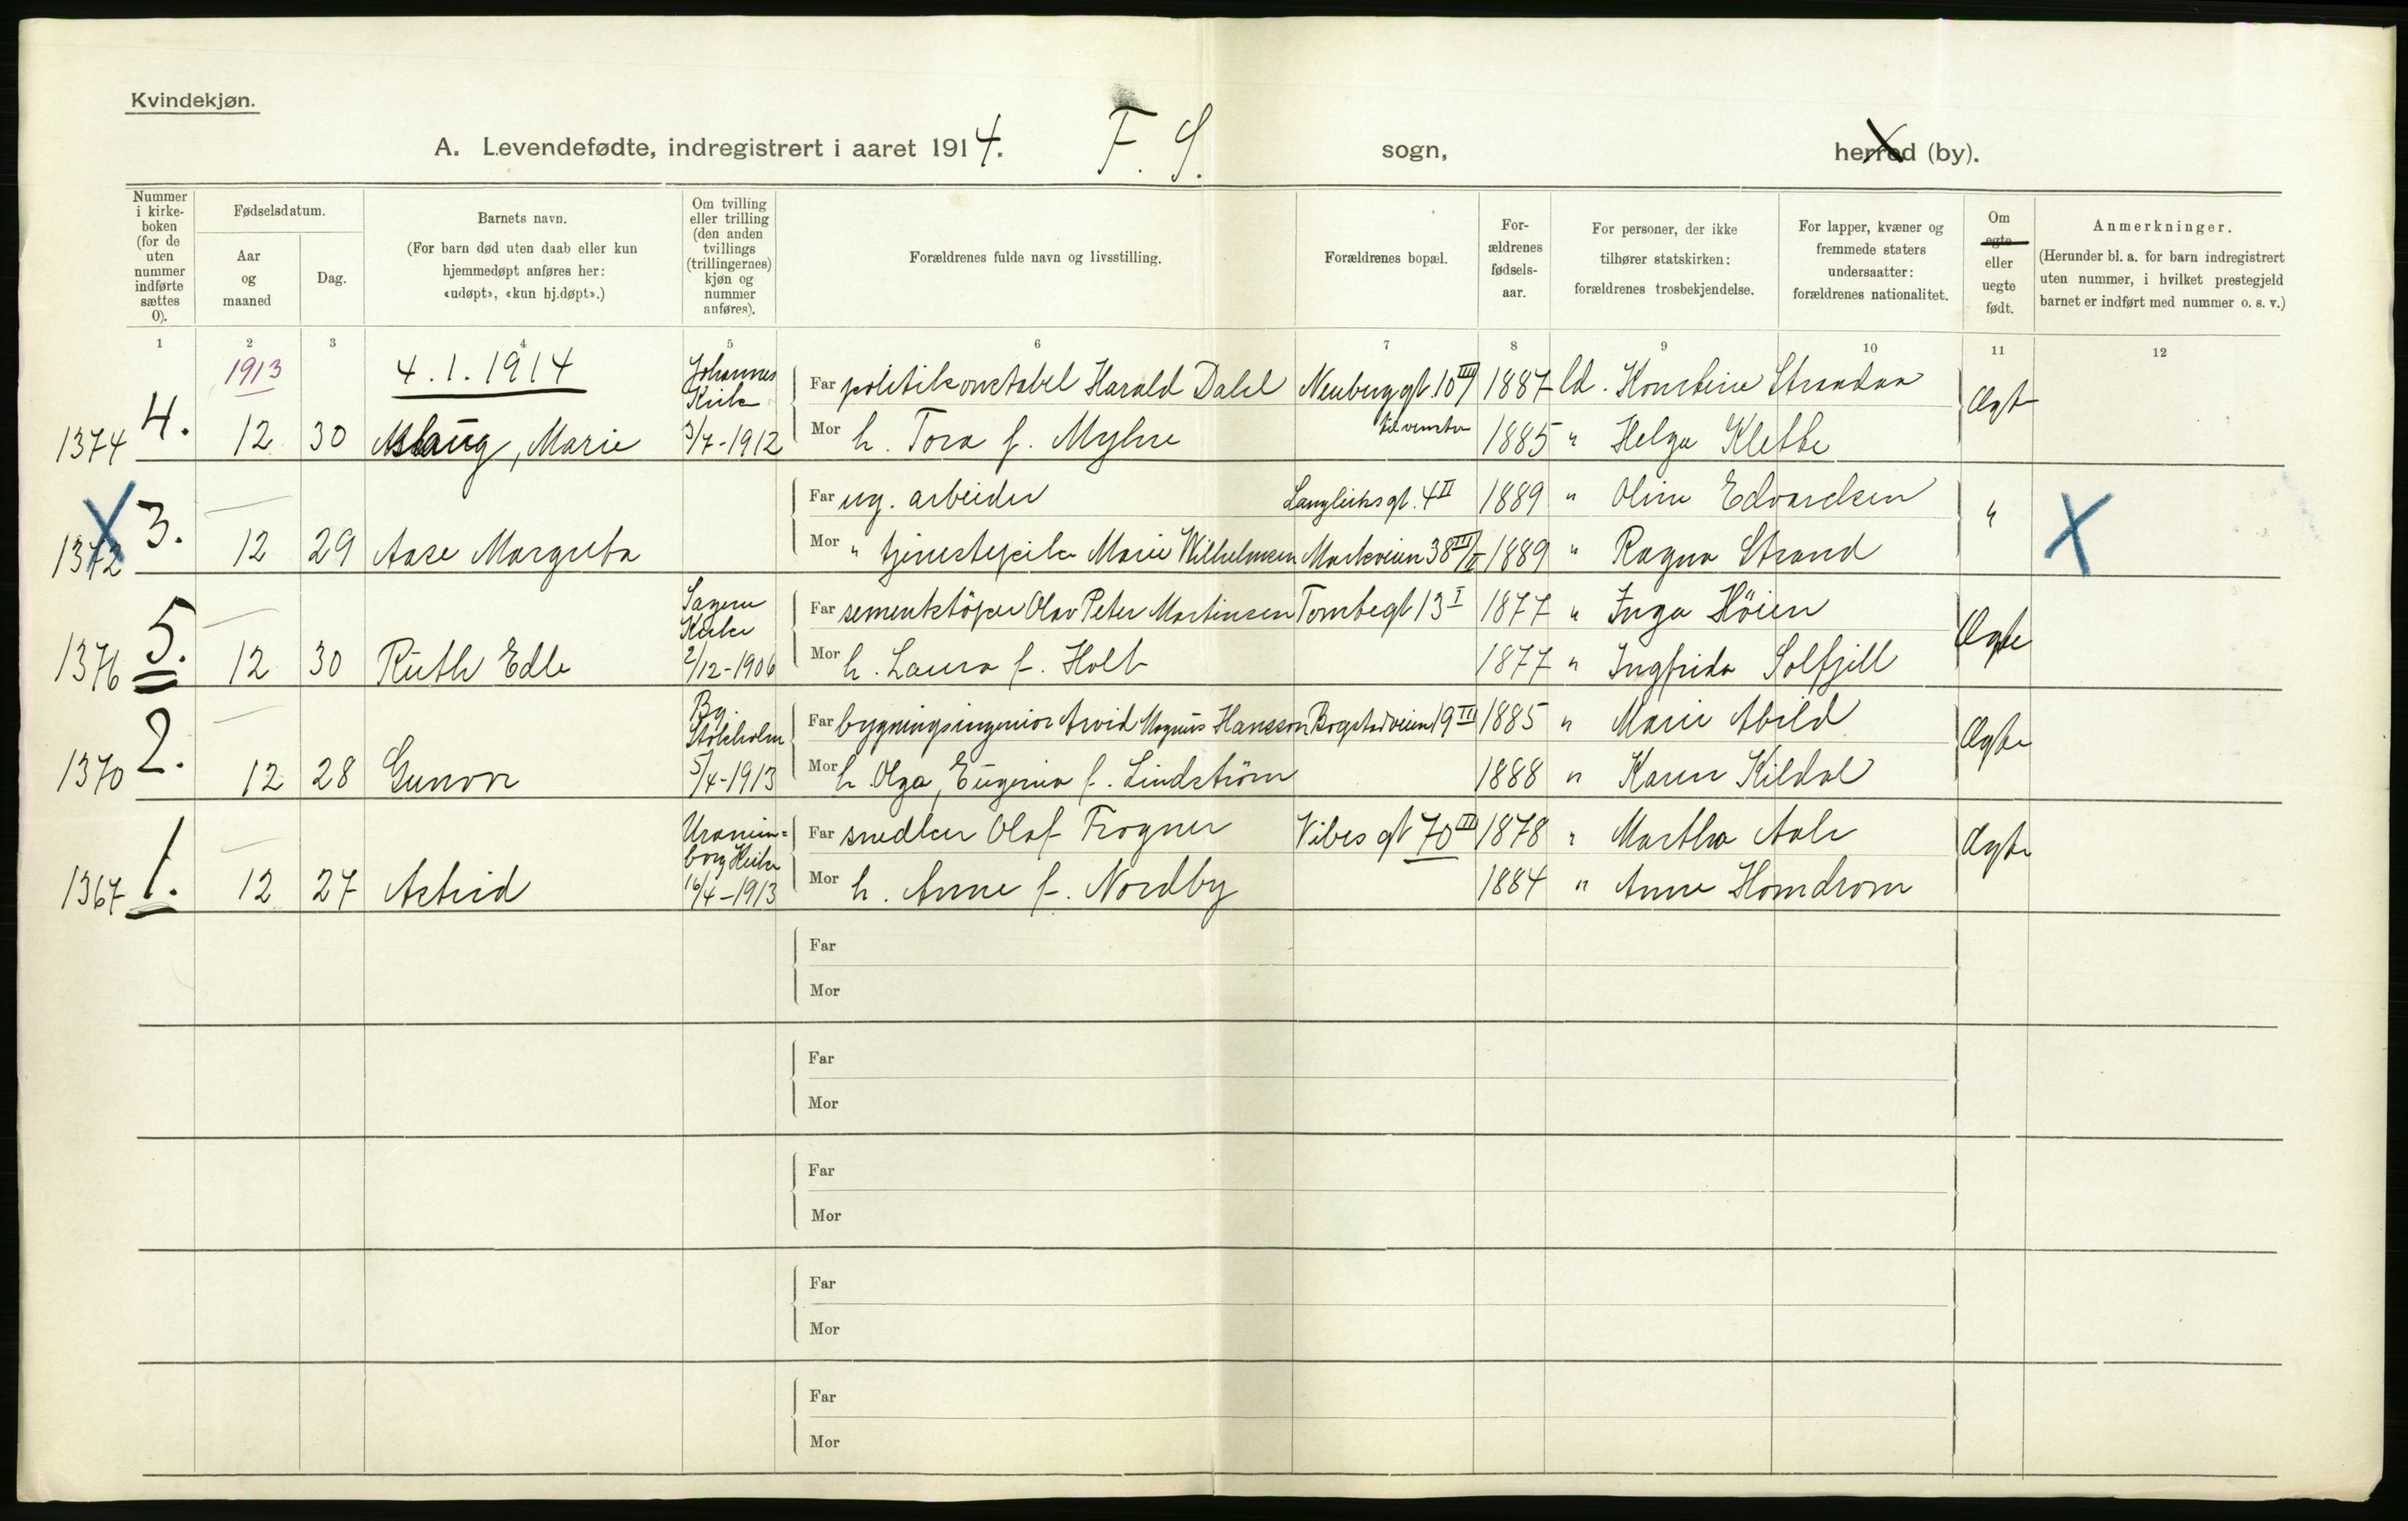 Kvindekjøn.
A. Levendefødte, indregistrert i aaret 1914. F. S. sogn, herred (by).
Nummer i kirke-boken (for de uten nummer indførte sættes 0).
Fødselsdatum.
Aar og maaned
Dag.
Barnets navn.
(For barn død uten daab eller kun hjemmedøpt anføres her: «udøpt», «kun hj.døpt».)
Om tvilling eller trilling (den anden tvillings (trillingernes) kjøn og nummer anføres).
Forældrenes fulde navn og livsstilling.
Forældrenes bopæl.
For-ældrenes fødsels-aar.
For personer, der ikke tilhører statskirken: forældrenes trosbekjendelse.
For lapper, kvæner og fremmede staters undersaatter: forældrenes nationalitet.
Om egte eller uegte født.
Anmerkninger.
(Herunder bl. a. for barn indregistrert uten nummer, i hvilket prestegjeld barnet er indført med nummer o. s. v.)
1 2 3 4 5 6 7 8 9 10 11 12
1913 4.1.1914 Johannes Kirke
Far politikonstabel Harald Dahl Neuberggt. 10 III 1887 ld.
1374 4. 12 30 Aslaug, Marie 3/7-1912 Mor h. Tora f. Myhre 1885 " Helga Klette Ægte
Far ug. arbeider Langleiksgt. 4 II 1889 " Oline Edvardsen
1372 3. 12 29 Aase Margreta Mor " Marie Wilhelmsen Markveien 38 III/II 1889 " Ragna Strand " X
Sagene Kirke Far sementstöper Olav Peter Martinsen Tomtegt 13 I 1877 " Inga Höien
1376 5. 12 30 Ruth Edle 2/12-1906 Mor h. Laura f. Holt 1877 " Ingfrida Solfjell Ægte
By. Stokholm Far bygningsingeniør Arvid Magnus Hansson Bogstadveien 19 III 1885 " Marie Abild
1370 2. 12 28 Gunvor 5/4-1913 Mor h. Olga, Eugenia f. Lindström 1888 " Karen Kildal Ægte
Uranienborg Kirke Far snedker Olaf Frogner Vibes gt 70 III 1878 " Martha Aale
1367 1. 12 27 Astrid 16/4-1913 Mor h. Anne f. Nordby 1884 " Anne Homdrom Ægte
Far
Mor
Far
Mor
Far
Mor
Far
Mor
Far
Mor